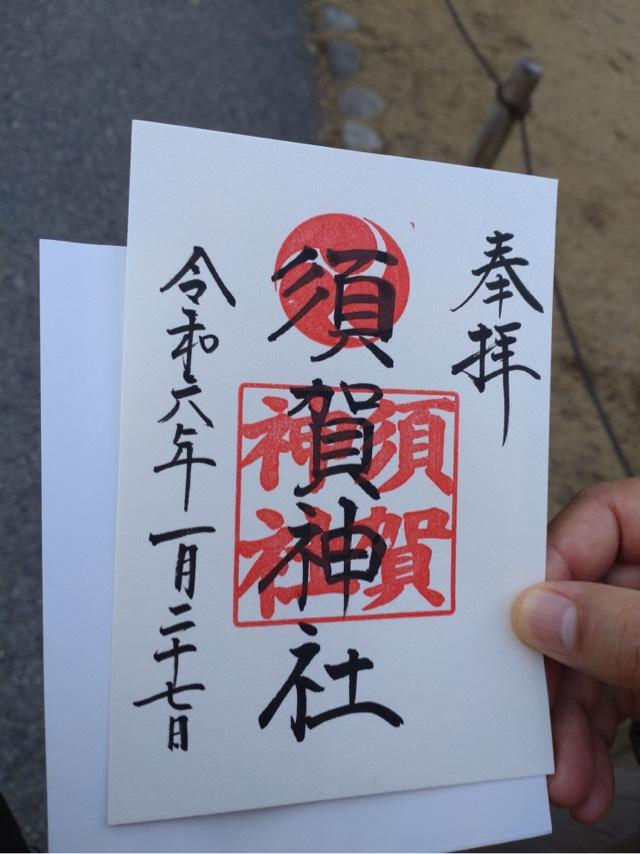 奉拝
須賀神社
須賀
神社
令和六年一月二十七日